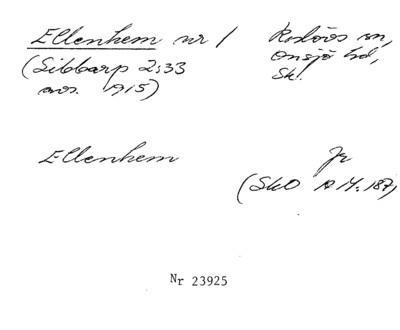 Ellenhem nr 1 Röstånga sn,
(Sibbarp 2:33 Onsjö hd,
avs. 1915) Sk.
Ellenhem Jr
(SkO 12 s. 187)
Nr 23925